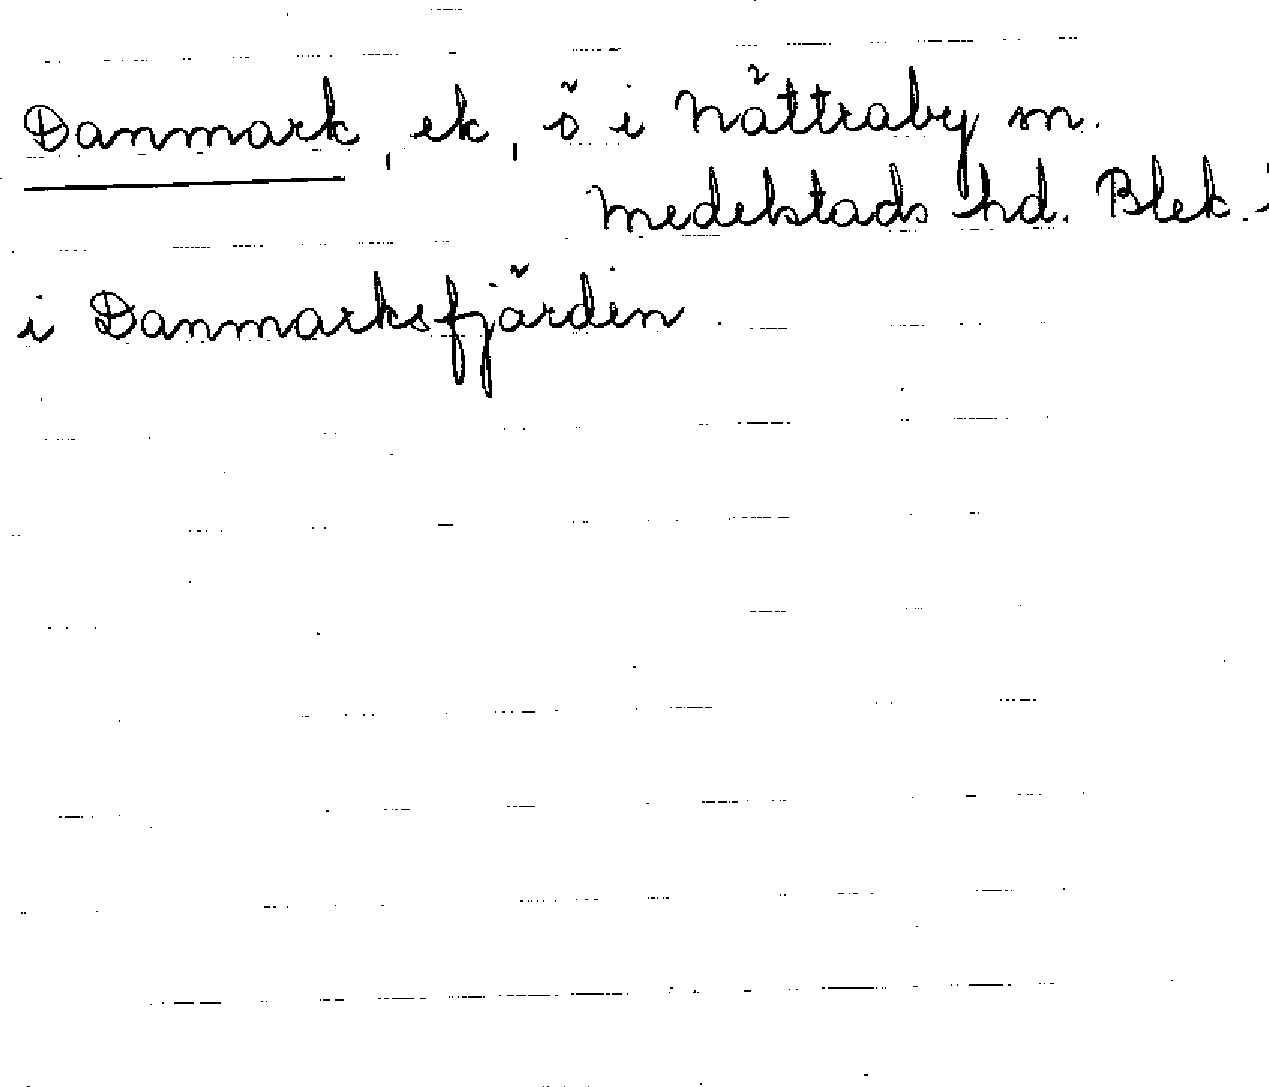 Danmark, ek, ö i Nättraby m.
Medelstads hd. Blek.
i Danmarksfjärden